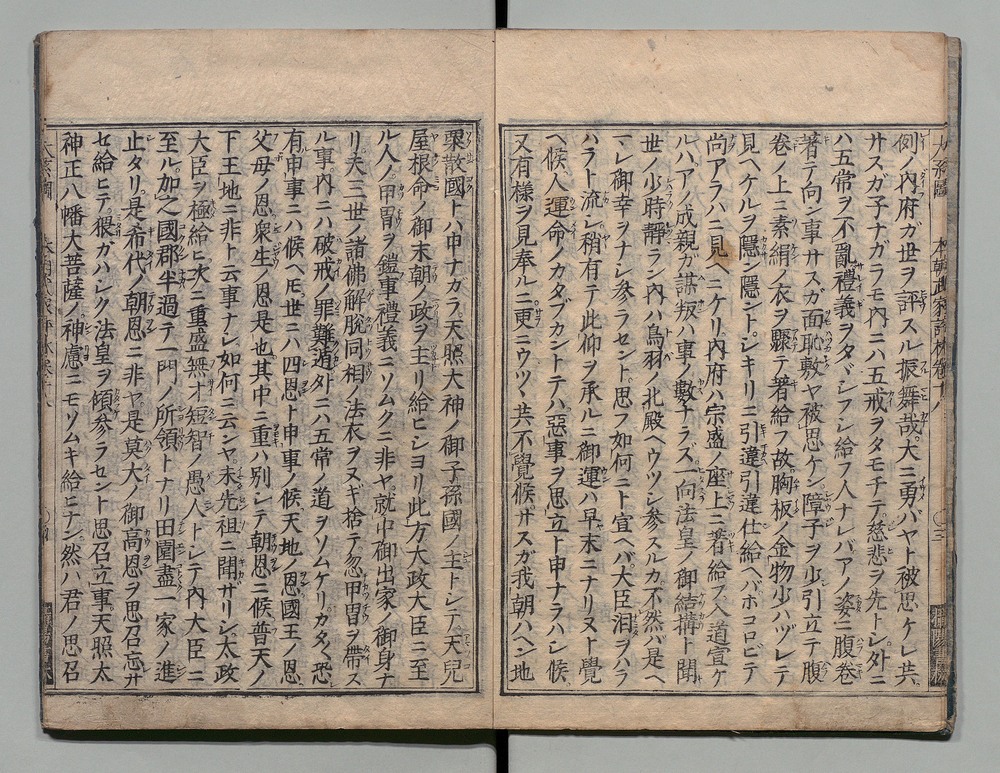 例ノ内府ガ世ヲ評スル振舞哉。大ニ勇バヤト被思ケレ共。
サスガ子ナガラモ内ニハ五戒ヲタモチテ慈悲ヲ先トシ外ニ
ハ五常ヲ不亂禮義ヲタヾシフシ給フ人ナレバアノ姿ニ腹卷
著テ向ン事サスガ面耻敷ヤ被思ケン障子ヲ少引立テ腹
卷ノ上ニ素絹ノ衣ヲ驟テ著給フ故胸板ノ金物少ハヅレテ
見ヘケルヲ隱ン隱ントシキリニ引違引違仕給ヘバホコロビテ
尚アラハニ見ヘニケリ内府ハ宗盛ノ座上ニ著給フ入道宣ケ
ルハアノ成親ガ謀叛ハ事ノ數ナラズ一向法皇ノ御結構ト聞
世ノ少時靜ラン内ハ鳥羽ノ北殿ヘウツシ參スルカ不然バ是ヘ
マレ御幸ヲナシ參ラセント思フ如何ニト宣ヘバ大臣泪ヲハラ
ハラト流シ稍有テ此仰ヲ承ルニ御運ハ早末ニナリヌト覺
ヘ候人ノ運命ノカタブカントテハ惡事ヲ思立ト申ナラハシ候
又有樣ヲ見奉ルニ更ニウツヽ共不覺候サスガ我朝ハヘン地
粟散國トハ申ナガラ天照大神ノ御子孫國ノ主トシテ天兒
屋根命ノ御末朝ノ政ヲ主リ給ヒシヨリ此方大政大臣ニ至
ル人ノ甲冑ヲ鎧事禮義ニソムクニ非ヤ就中御出家ノ御身ナ
リ夫三世ノ諸佛解脫同相ノ法衣ヲヌギ捨テ忽甲冑ヲ帶ス
ル事内ニハ破戒ノ罪難遁外ニハ五常ノ道ヲソムケリカタ〴〵恐
有申事ニハ候ヘモ世ニハ四恩ト申事ノ候天地ノ恩國王ノ恩
父母ノ恩衆生ノ恩是也其中ニ重ハ別シテ朝恩ニ候普天ノ
下王地ニ非ト云事ナシ如何ニ云ンヤ未先祖ニ聞サリシ太政
大臣ヲ極給ヒ次ニ重盛無才短智ノ愚人トシテ内大臣ニ
至ル加之國郡半過テ一門ノ所領トナリ田園盡一家ノ進
止タリ是希代ノ朝恩ニ非ヤ是莫大ノ御高恩ヲ思召忘サ
セ給ヒテ猥ガハシク法皇ヲ傾參ラセント思召立事天照太
神正八幡大菩薩ノ神慮ニモソムキ給ヒナン然ハ君ノ思召